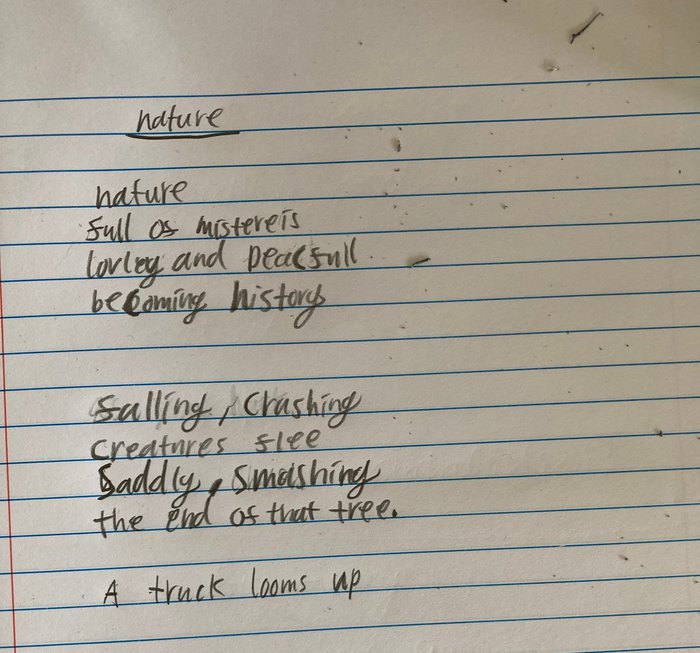 nature
nature
full of mistereis
lovley and peacfull
becoming history
falling, Crashing
Creatures flee
Saddly, Smashing
the end of that tree.
A truck looms up